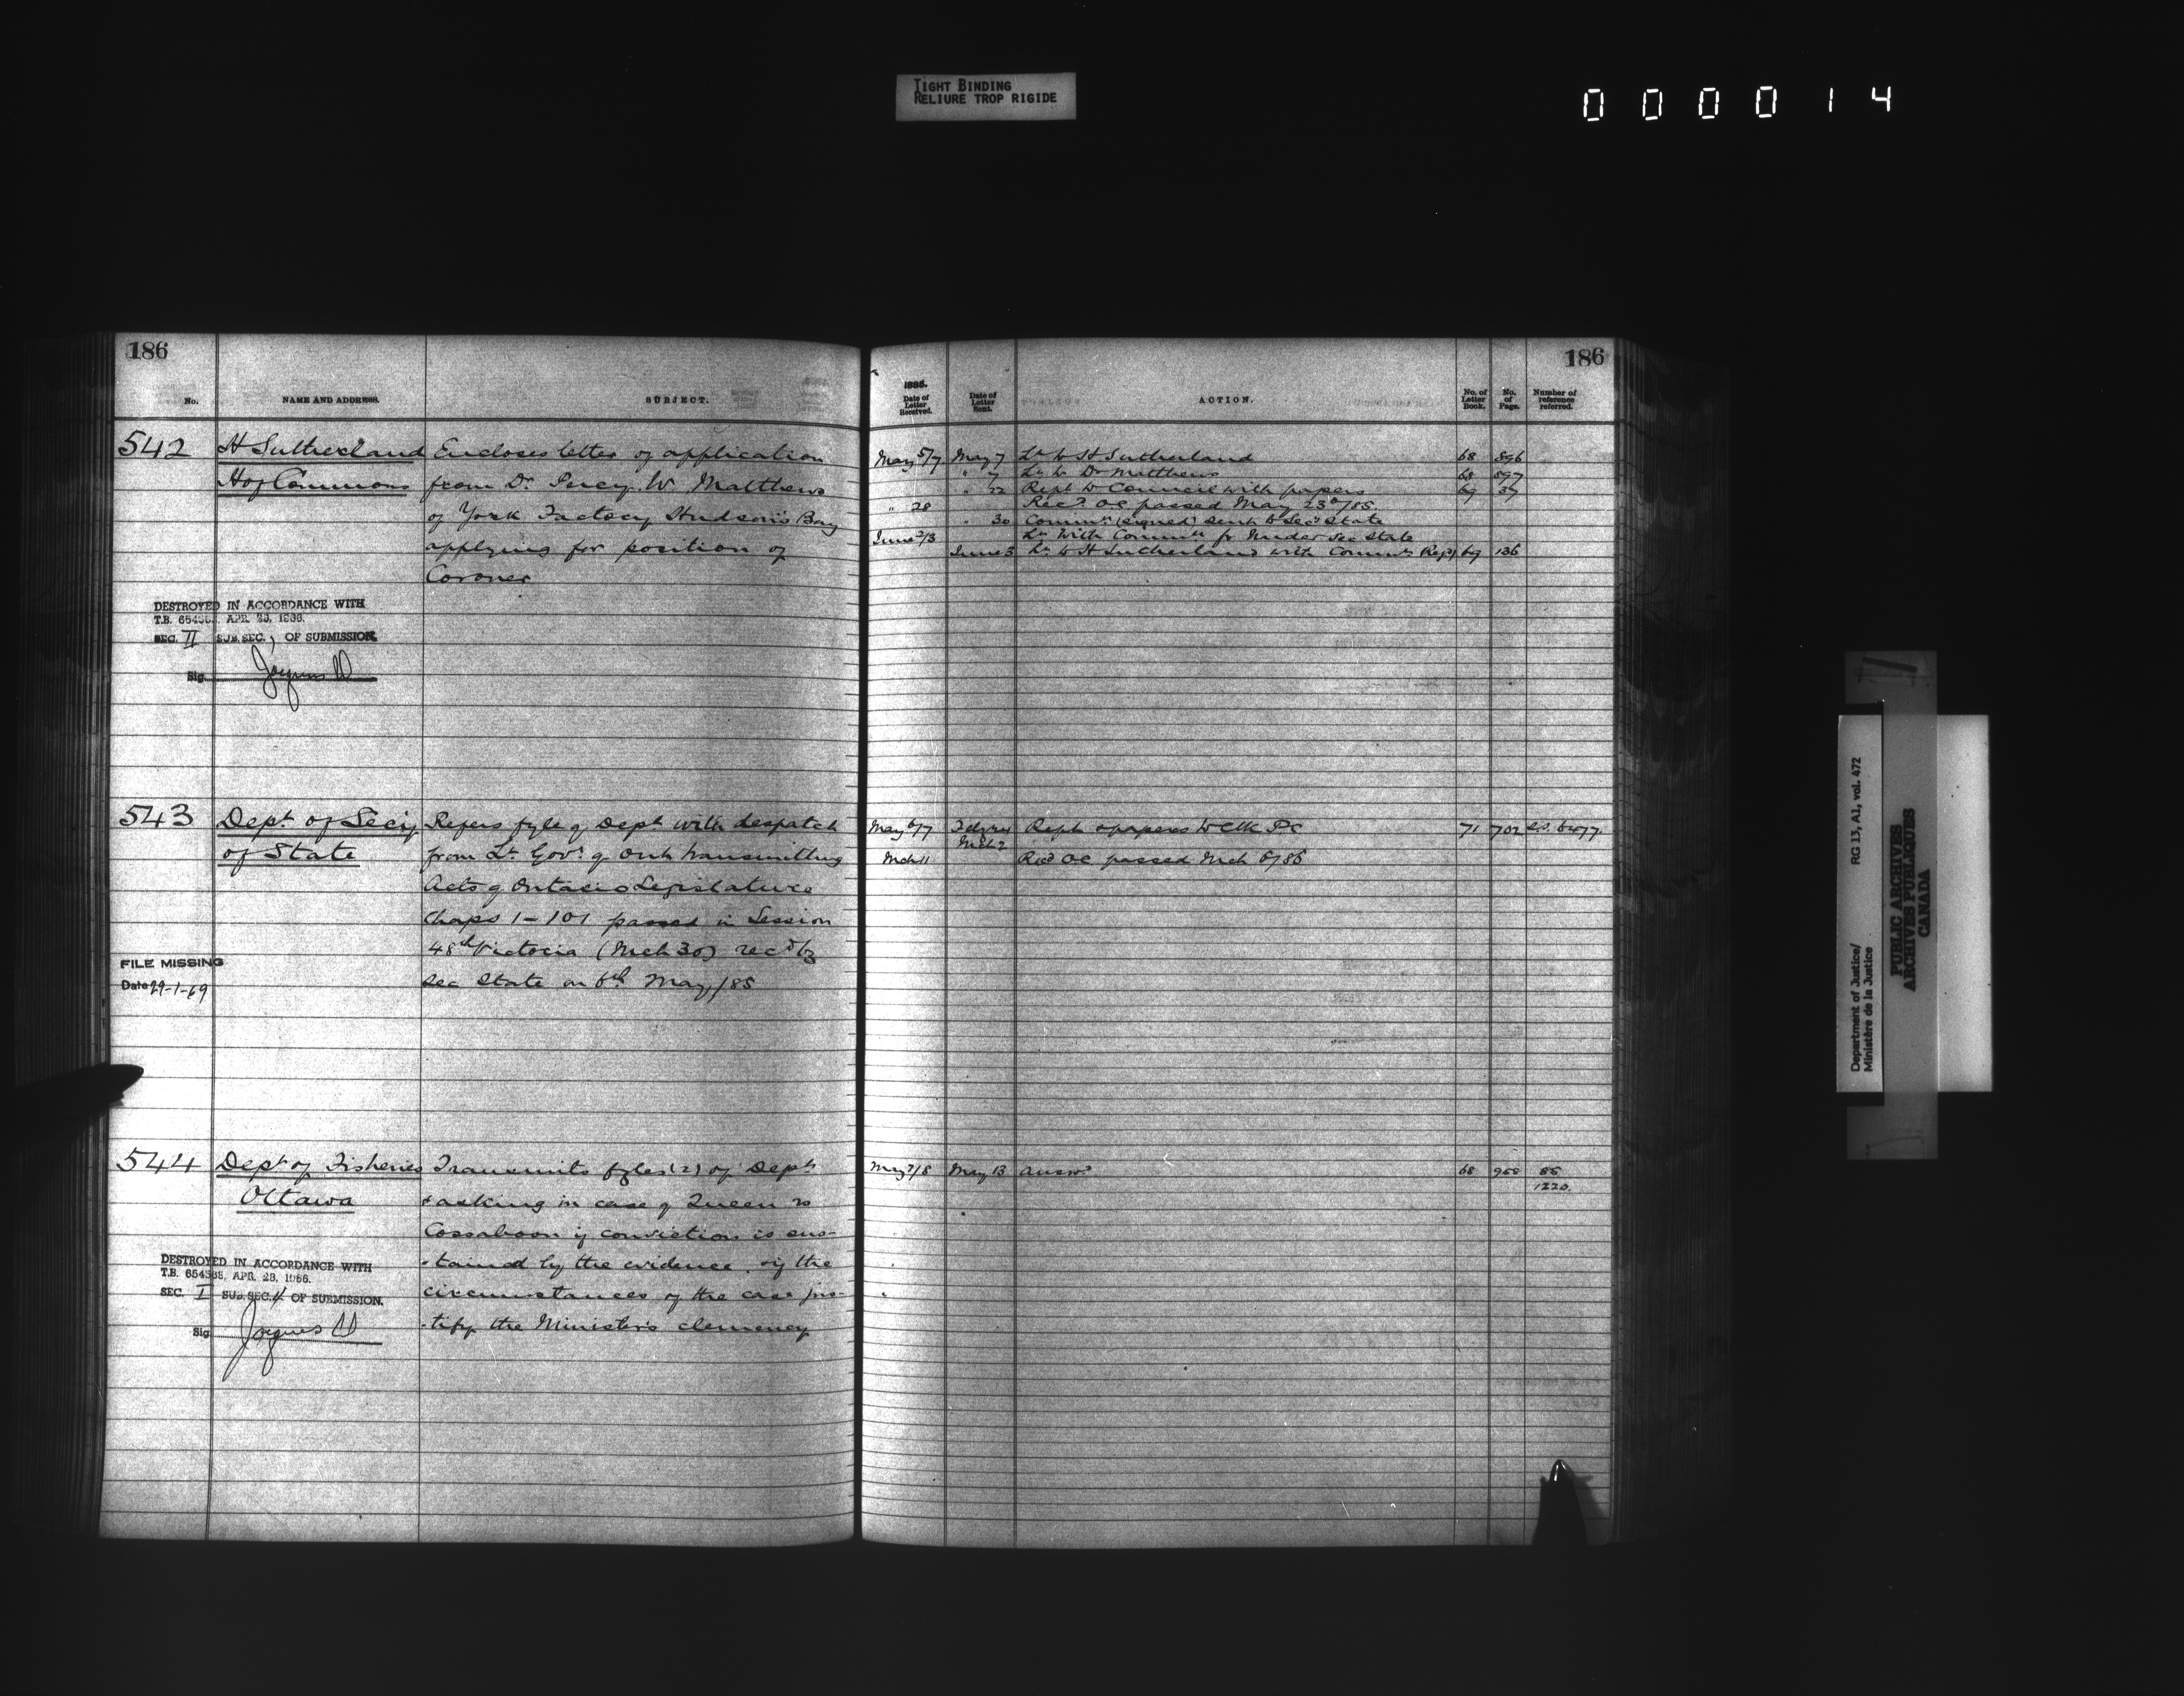 TIGHT BINDING
RELIURE TROP RIGIDE
000014
186
No.
NAME AND ADDRESS.
SUBJECT.
542
H Sutherland
H of Commons
Encloses letter of application
from Dr. Percy W Matthews
of York Factory Hudson's Bay
applying for position of
Coroner
DESTROYED IN ACCORDANCE WITH
T.B. 654538, APR. 28, 1966.
SEC. II SUB. SEC. 1 OF SUBMISSION.
Sig.
543
Dept. of Secy
of State
Refers fyle of Dept. with despatch
from Lt. Govr. of Ont transmitting
Acts of Ontario Legislature
Chaps 1-101 passed in Session
48th Victoria (Mch 30) recd by
Sec State on 6th May/85
FILE MISSING
Date 29-1-69
544
Dept. of Fisheries
Ottawa
Transmits fyles (2) of Dept.
& asking in case of Queen vs
Cossaboon if conviction is sus-
-tained by the evidence, if the
circumstances of the case jus-
-tify the Minister's clemency
DESTROYED IN ACCORDANCE WITH
T.B. 654538, APR. 28, 1966.
SEC. I SUB. SEC. 4 OF SUBMISSION.
Sig.
186
1885.
Date of Letter Received.
Date of Letter Sent.
ACTION.
No. of Letter Book.
No. of Page.
Number of reference referred.
May 5/7 May 7 Lr to H Sutherland 68 896
" 7 Lr to Dr Matthews 68 897
" 22 Rept to Council with papers 69 37
" 28 Recd. OC passed May 23d/85.
" 30 Commn (signed) sent to Secy State
June 2/3 Lr with Commn fr Under Sec State
June 3 Lr to H Sutherland with Commn (Regd) 69 136
May 6/7 Rept & papers to Clk PC 71 702
Mch 2
Mch 11 Recd OC passed Mch 6/86
May 7/8 May 13 Answd 68 958 85
1220.
Department of Justice/
Ministère de la Justice
RG 13, A1, vol. 472
PUBLIC ARCHIVES
ARCHIVES PUBLIQUES
CANADA